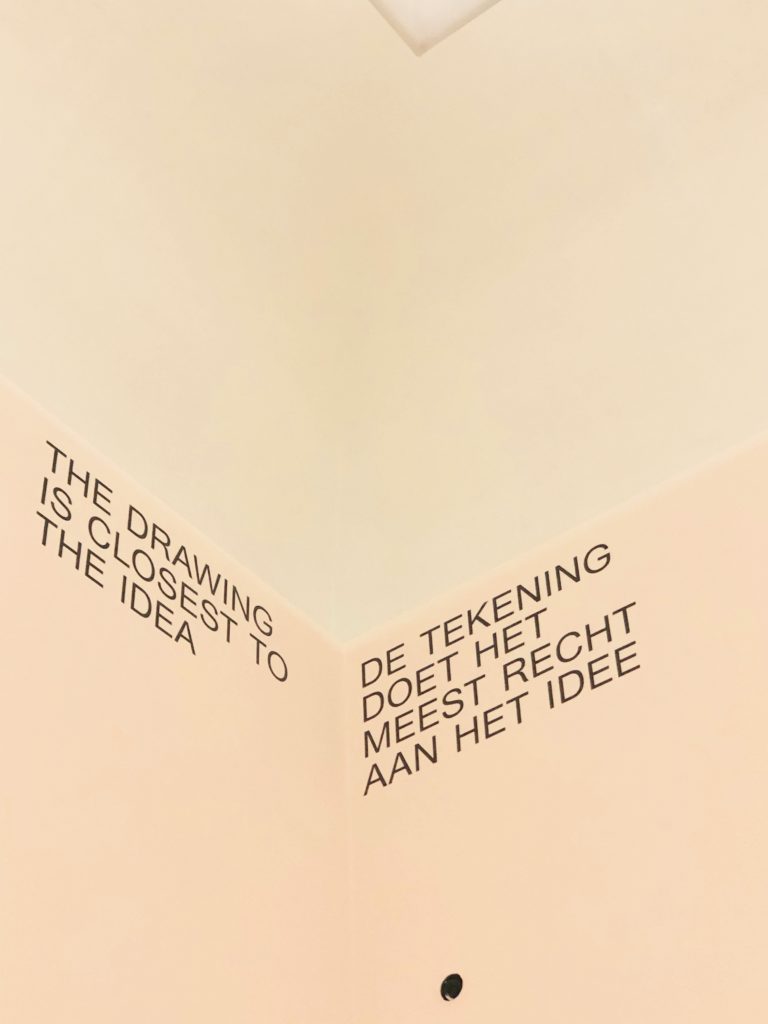 THE DRAWING
IS CLOSEST TO
THE IDEA
DE TEKENING
DOET HET
MEEST RECHT
AAN HET IDEE